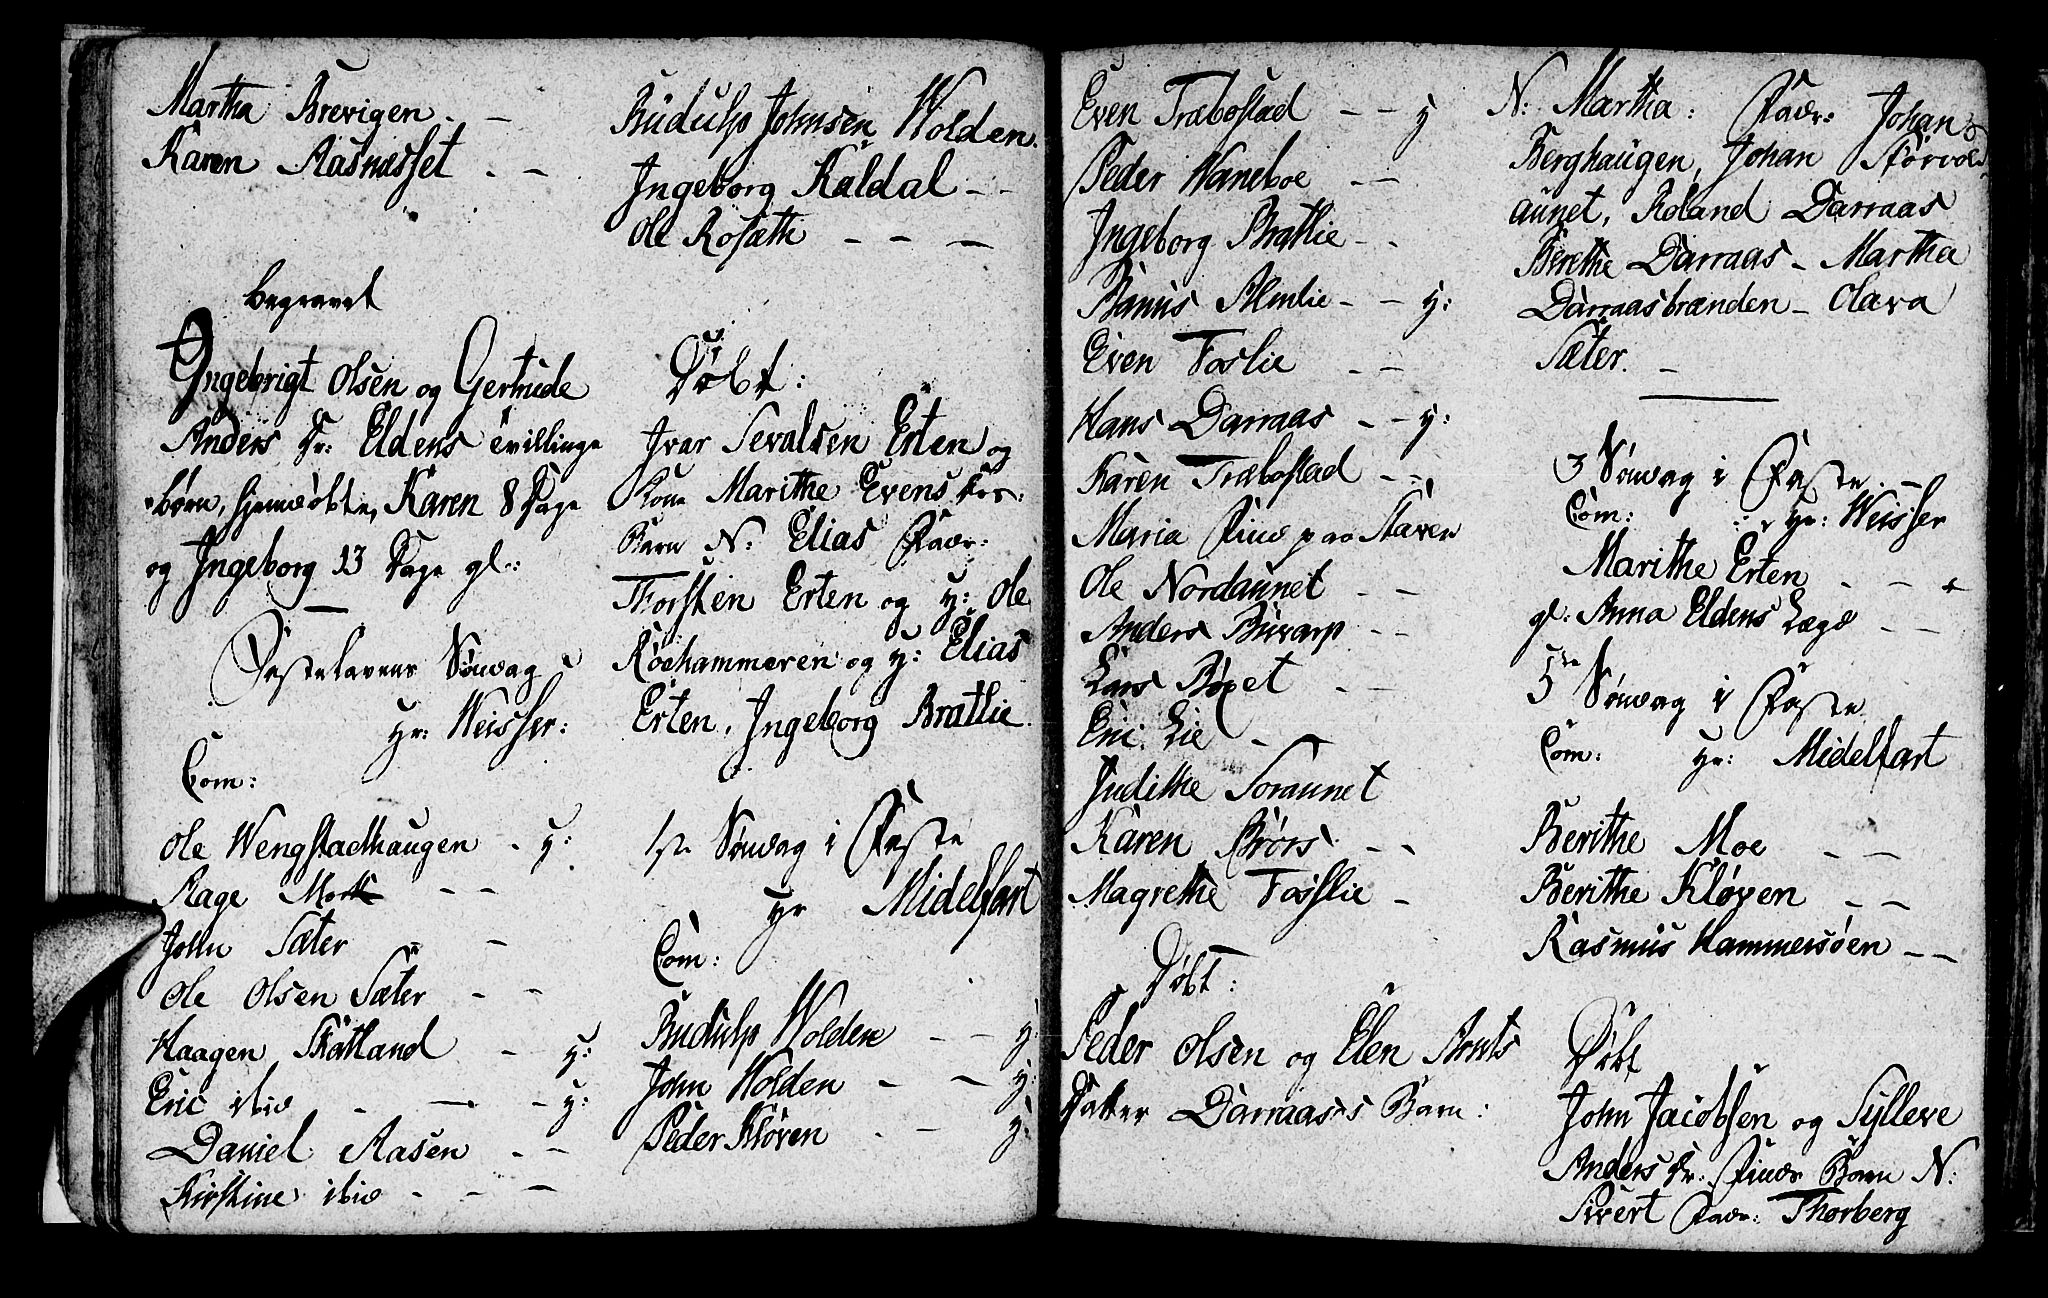 Martha Brevigen - -
Karen Aasnæsset - -
begravet
Ingebrigt Olsen og Gertrude
Anders Dr: Eldens tvillinge
børn, hjemdøbte, Karen 8 Dage
og Ingeborg 13 Dage gl:
Fastelavens Søndag
Hr: Weisser:
Com:
Ole Wengstadhaugen - y:
Aage - -
John Sæter - -
Ole Olsen Sæter - -
Haagen Skatland - y:
Eric ibid - - - y:
Daniel Aasen - -
Kirstine ibid - - -
Rudulp Johnsen Wolden
Ingeborg Kaldal - -
Ole Rosæth - - -
Døbt:
Ivar Sevalsen Erten og
Kone Marithe Evens Dr:
Barn N: Elias Fadr:
Thorsten Erten og y: Ole
Røehammeren og y: Elias
Erten, Ingeborg Bratlie
1ste Søndag i Faste
Hr Midelfart
Com:
Rudulp Wolden - - y:
John Holden - - y:
Peder Kløven - - y:
Even Træbostad - - y
Peder Waneboe - -
Ingeborg Bratlie - -
Almlie - - y:
Even Foslie - -
Hans Darraas - - y:
Karen Træbostad - -
Maria Find paa Staven
Ole Nordaunet - -
Anders Buvarp - -
Lars - -
Eric Lie - -
Judithe Soraunet
Karen Brørs - -
Magrethe Fosslie -
Døbt:
Peder Olsen og Elen Arnts
Datter Darraas's Barn:
N: Martha: Fadr: Johan
Berghaugen, Johan Størvold
aunet, Roland Darraas
Berethe Darraas - Martha
Darraasbrænden - Olava
Sæter. -
3 Søndag i Faste. -
Com: Hr: Weisser
Marithe Erten - -
gl: Anna Eldens Lægd - -
5te Søndag i Faste
Com: Hr: Midelfart
Berithe Moe - -
Berithe Kløven - -
Rasmus Hammersøen - -
Døbt
John Jacobsen og Sylleve
Anders Dr: Finds Barn N:
Sivert Fadr: Thorberg